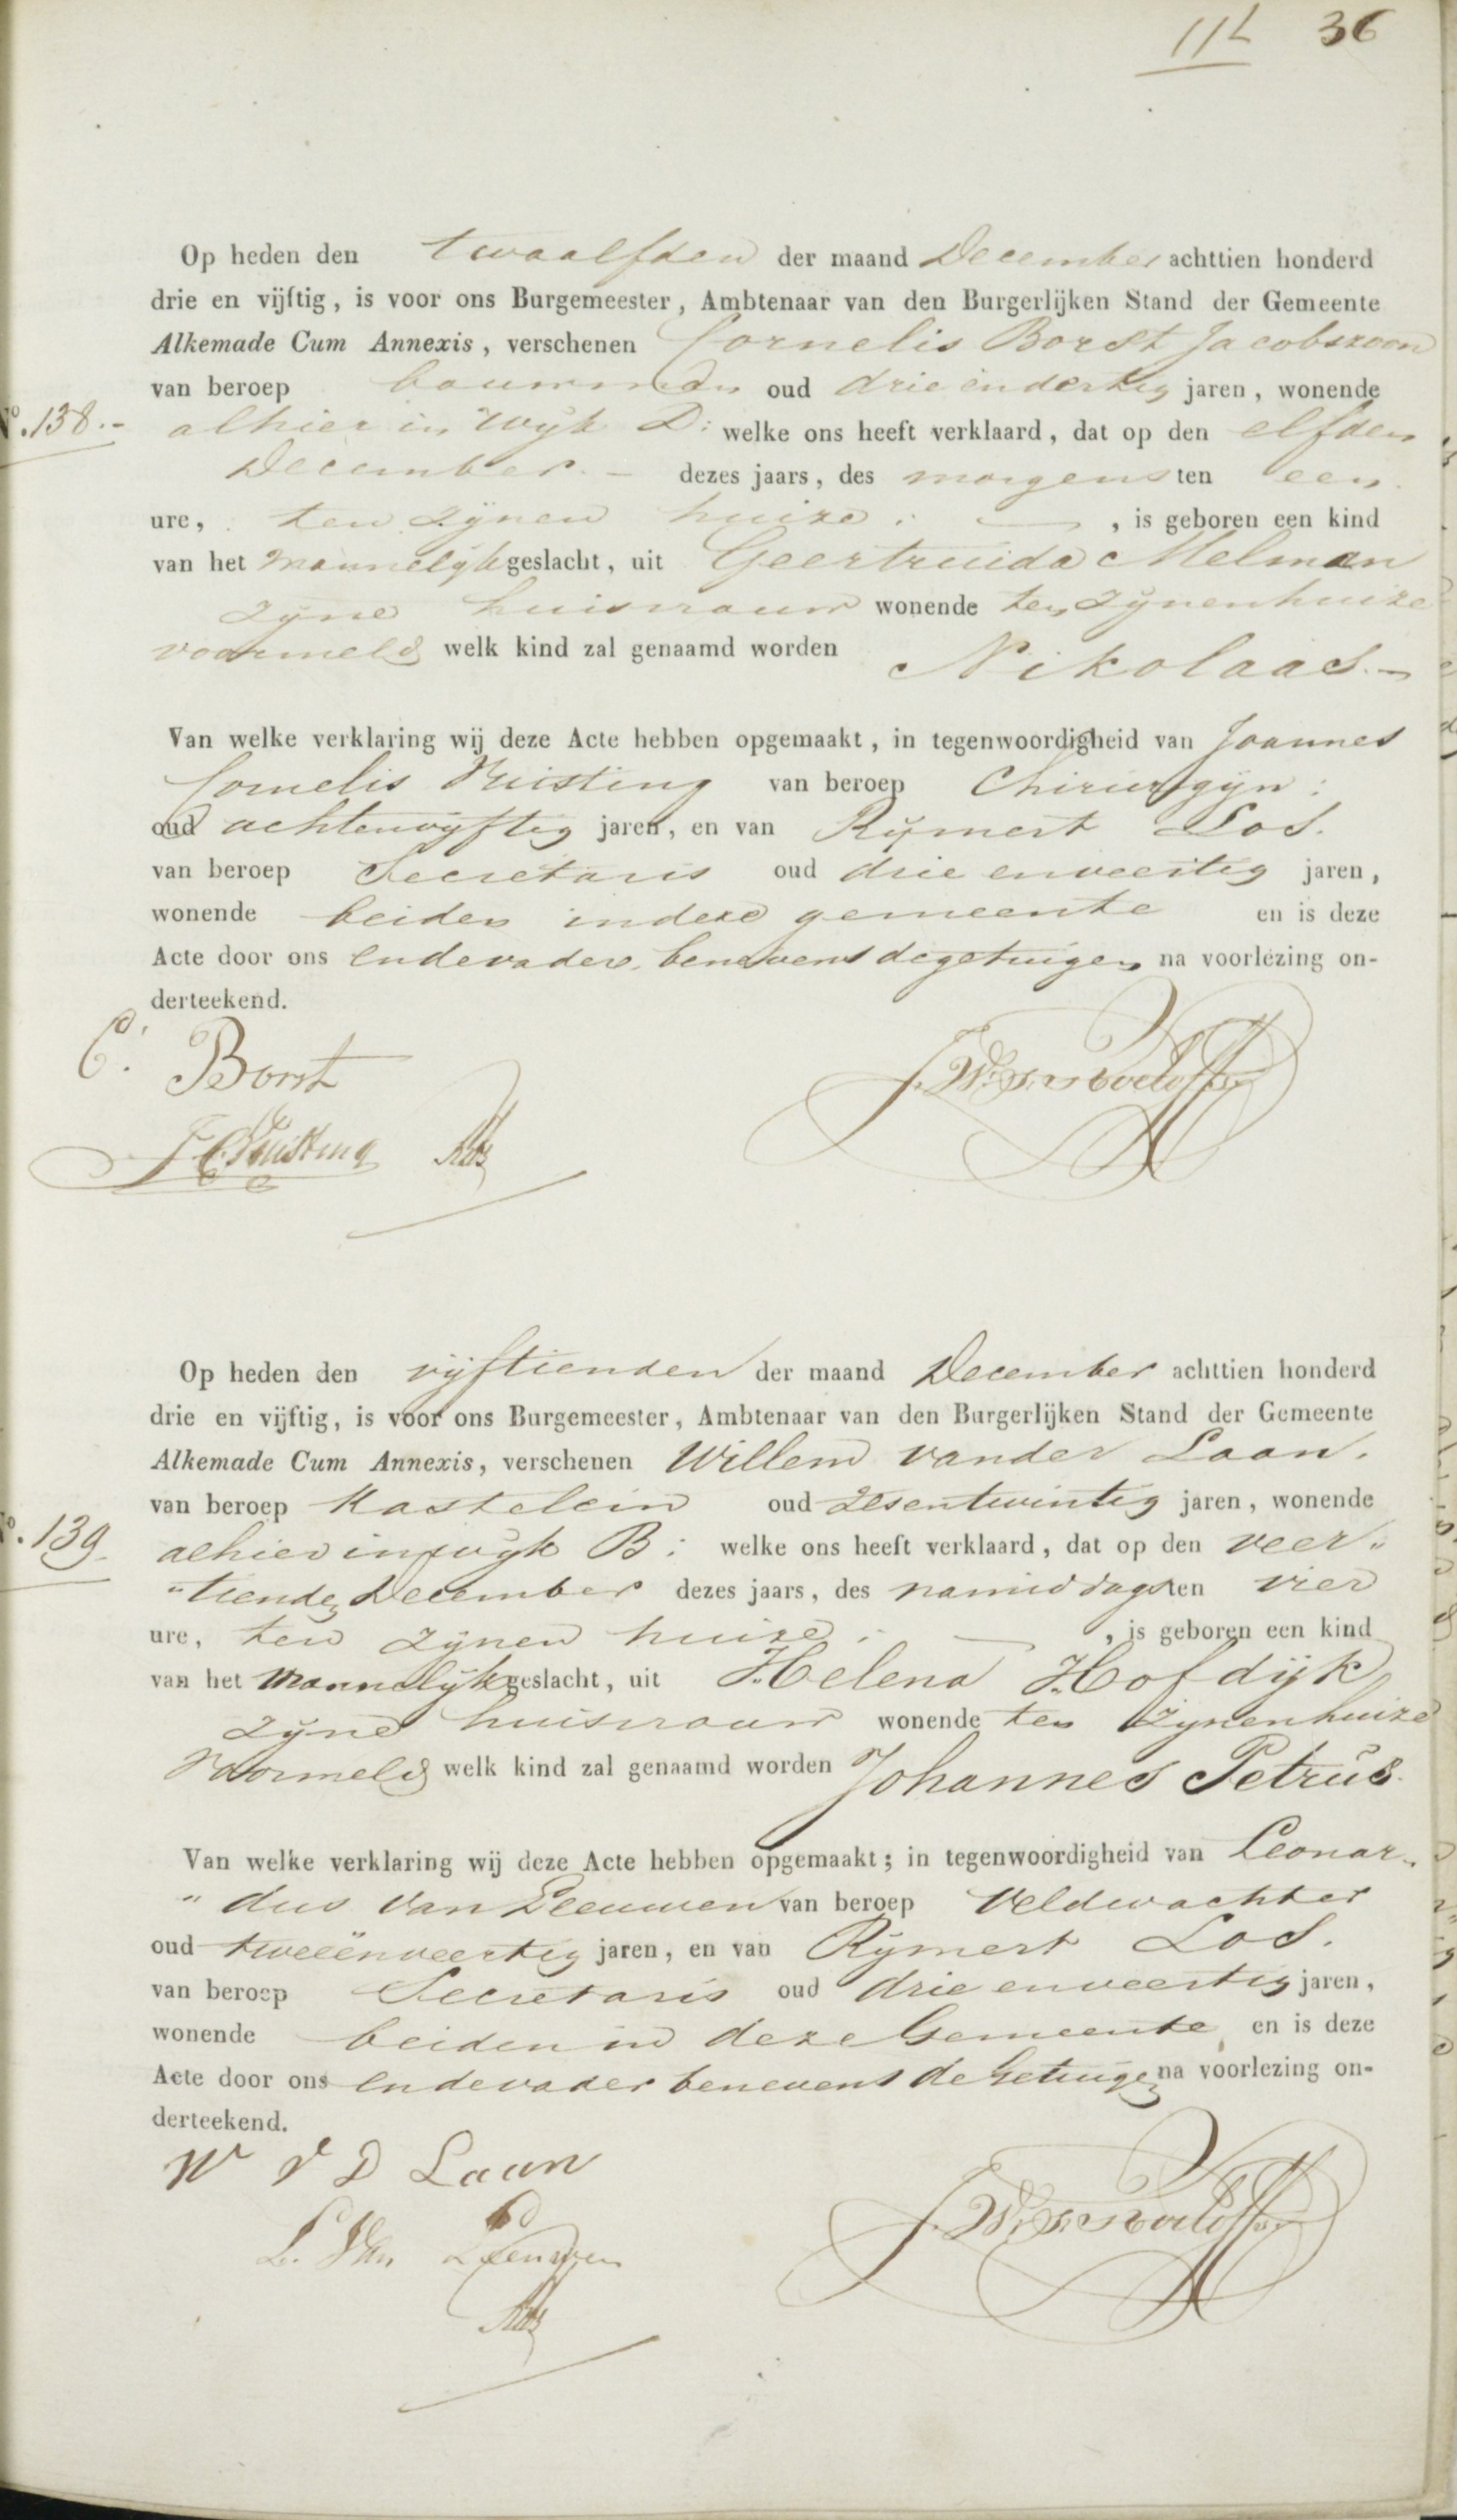 36
Op heden den twaalfden der maand December achttien honderd
drie en vijftig, is voor ons Burgemeester, Ambtenaar van den Burgerlijken Stand der Gemeente
Alkemade Cum Annexis, verschenen Cornelis Borst Jacobszoon
van beroep bouwman oud drie en dertig jaren, wonende
No. 138.-
alhier in Wijk D: welke ons heeft verklaard, dat op den elfden
December. - dezes jaars, des morgens ten een
ure, ten zijnen huize. , is geboren een kind
van het mannelijk geslacht, uit Geertruida Melman
zijne huisvrouw wonende ten zijnen huize
voormeld welk kind zal genaamd worden Nikolaas.-
Van welke verklaring wij deze Acte hebben opgemaakt, in tegenwoordigheid van Joannes
Cornelis van beroep Chirurgijn:
oud achtenvijftig jaren, en van Rijmert Los.
van beroep Secretaris oud drie en veertig jaren,
wonende beiden in deze gemeente en is deze
Acte door ons en de vader, benevens de getuigen na voorlezing on-
derteekend.
C. Borst
Op heden den vijftienden der maand December achttien honderd
drie en vijftig, is voor ons Burgemeester, Ambtenaar van den Burgerlijken Stand der Gemeente
Alkemade Cum Annexis, verschenen Willem van der Laan.
van beroep Kastelein oud zesentwintig jaren, wonende
No. 139.
alhier in wijk B: welke ons heeft verklaard, dat op den veer„
„tienden December dezes jaars, des namiddags ten vier
ure, ten zijnen huize. , is geboren een kind
van het mannelijk geslacht, uit Helena Hofdijk
zijne huisvrouw wonende ten zijnen huize
voormeld welk kind zal genaamd worden Johannes Petrus.
Van welke verklaring wij deze Acte hebben opgemaakt; in tegenwoordigheid van Leonar„
„dus van Leeuwen van beroep Veldwachter
oud tweeënveertig jaren, en van Rijmert Los.
van beroep Secretaris oud drie en veertig jaren,
wonende beiden in deze Gemeente en is deze
Acte door ons en de vader benevens de Getuigen na voorlezing on-
derteekend.
W V D Laan
L. Van Leeuwen